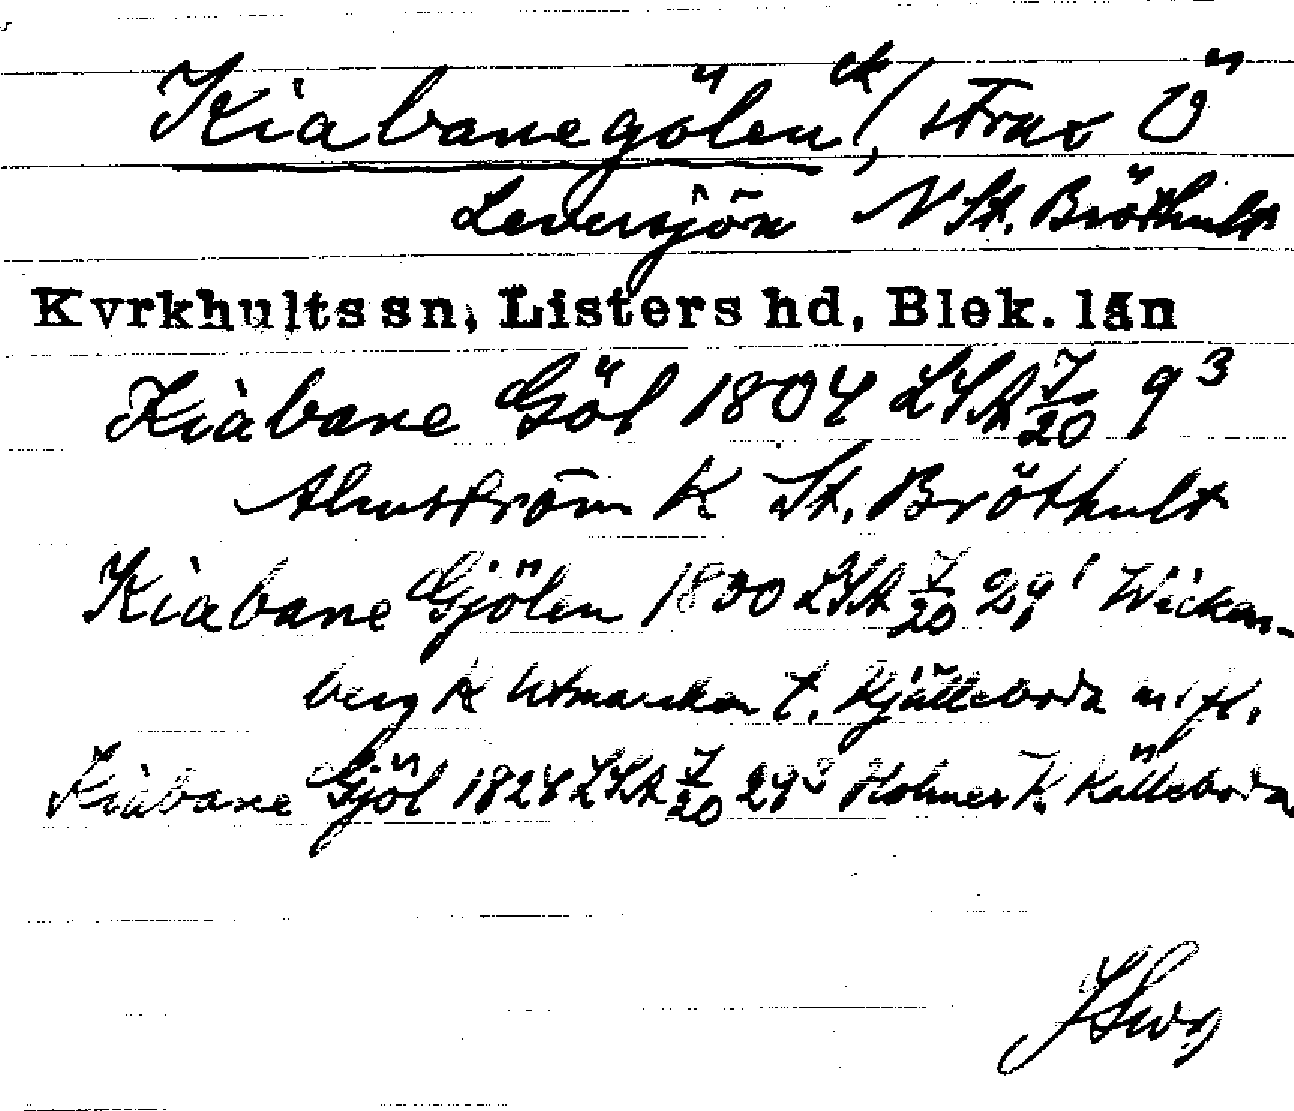 Kiabanegölen ek/, strax Ö
Leversjön N St. Bröthult
Kyrkhults sn, Listers hd, Blek. län
Kiàbane Göl 1804 LSA 7/20 9³
Almström K St. Bröthult
Kiàbane Gjölen 1830 LSA 7/20 29¹ Wicken-
berg K Utmarken t. Kjälleboda m. fl.
Kiàbane Gjöl 1824 LSA 7/20 29³ Holmer K Källeboda